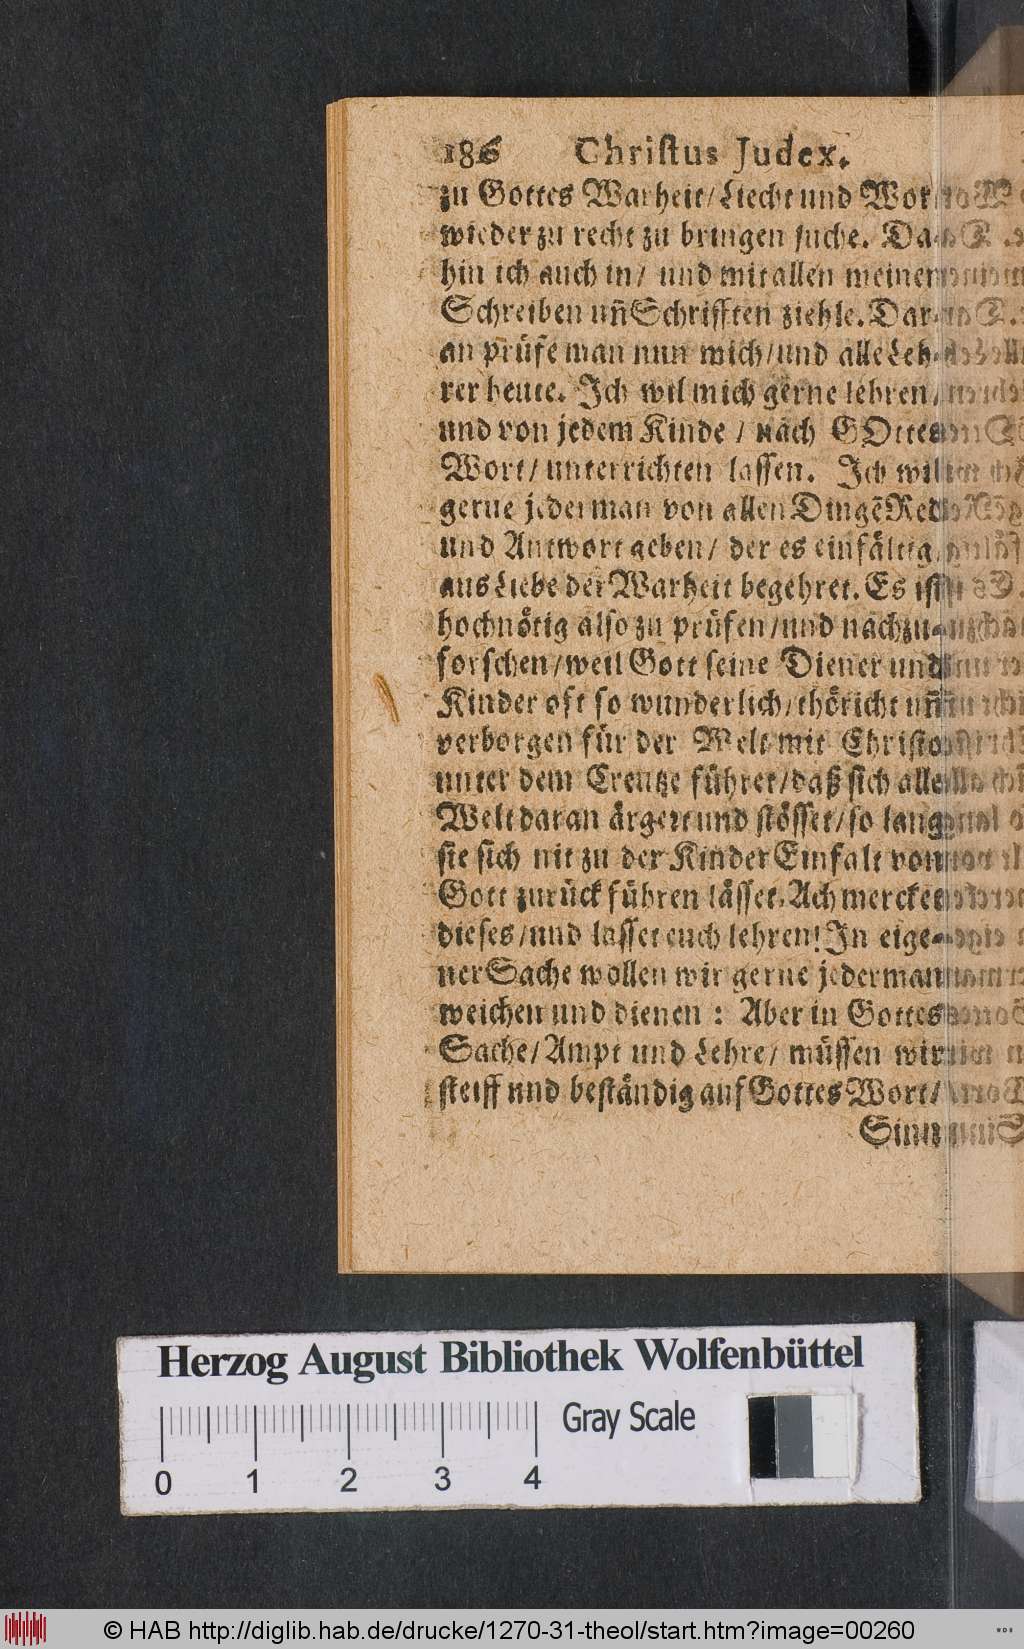 186 Christus Judex.
zu Gottes Warheit/ Liecht und Wort
wieder zu recht zu bringen suche. Da-
hin ich auch in/ und mit allen meinen
Schreiben uñ Schrifften ziehle. Dar-
an prüfe man nun mich/ und alle Leh-
rer heute. Ich wil mich gerne lehren/
und von jedem Kinde / nach GOttes
Wort/ unterrichten lassen. Ich wil
gerne jederman von allen Dingẽ Red
und Antwort geben/ der es einfältig,
aus Liebe der Warheit begehret. Es ist
hochnötig also zu prüfen/ und nachzu-
forschen/ weil Gott seine Diener und
Kinder oft so wunderlich/ thöricht uñ
verborgen für der Welt mit Christo
unter dem Creutze führet/ daß sich alle
Welt daran ärgert und stösset/ so lang
sie sich nit zu der Kinder Einfalt von
Gott zurück führen lässet. Ach mercket
dieses/ und lasset euch lehren! In eige-
ner Sache wollen wir gerne jederman
weichen und dienen : Aber in Gottes
Sache/ Ampt und Lehre/ müssen wir
steiff und beständig auf Gottes Wort/
Herzog August Bibliothek Wolfenbüttel
Gray Scale
0 1 2 3 4
© HAB http://diglib.hab.de/drucke/1270-31-theol/start.htm?image=00260